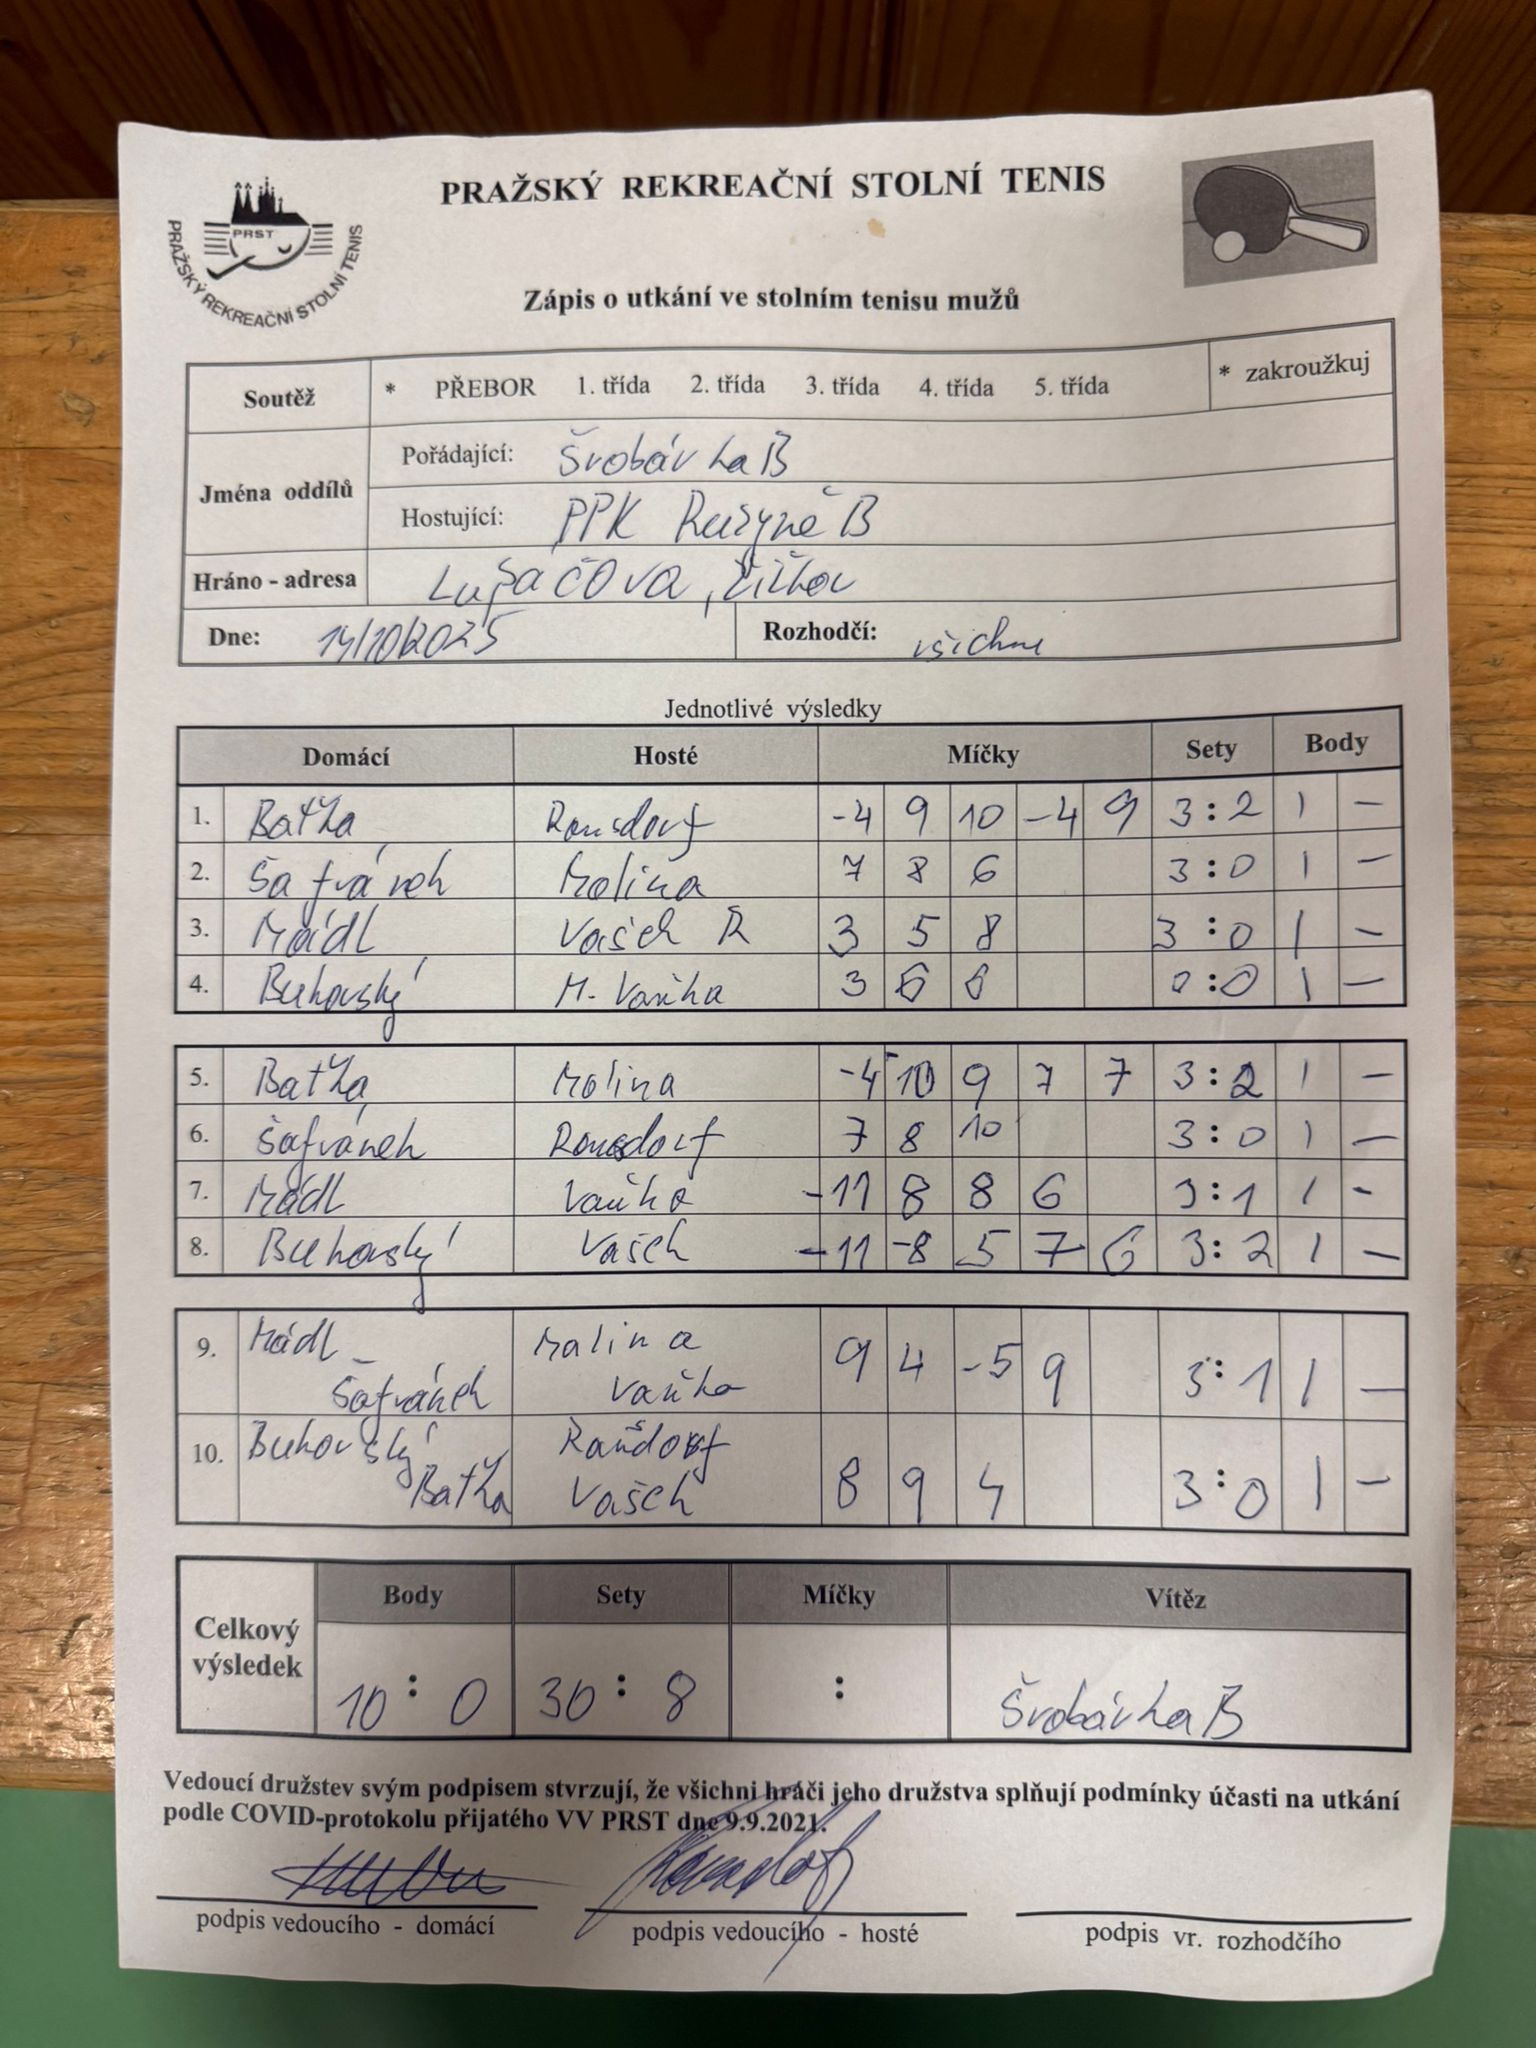 PRAŽSKÝ REKREAČNÍ STOLNÍ TENIS
PRST
PRAŽSKÝ REKREAČNÍ STOLNÍ TENIS
Zápis o utkání ve stolním tenisu mužů
Soutěž * PŘEBOR 1. třída 2. třída 3. třída 4. třída 5. třída * zakroužkuj
Jména oddílů
Pořádající: Šrobárka B
Hostující: PPK Ruzyně B
Hráno - adresa Lupačova, Žižkov
Dne: 14/10/2025 Rozhodčí: všichni
Jednotlivé výsledky
Domácí Hosté Míčky Sety Body
1. Baťka Ronsdorf -4 9 10 -4 9 3:2 1 –
2. Šafránek Molina 7 8 6 3:0 1 –
3. Mádl Vašek R 3 5 8 3:0 1 –
4. Bukovský M. Vaňka 3 6 6 0:0 1 –
5. Baťka Molina -4 -10 9 7 7 3:2 1 –
6. Šafránek Ronsdorf 7 8 10 3:0 1 –
7. Mádl Vaňka -11 8 8 6 3:1 1 -
8. Bukovský Vašek -11 -8 5 7 6 3:2 1 –
9. Mádl Malina 9 4 -5 9 3:1 1 –
Šafránek Vaňka
10. Bukovský Ranšdorf 8 9 4 3:0 1 –
Baťka Vašek
Body Sety Míčky Vítěz
Celkový výsledek 10 : 0 30 : 8 : Šrobárka B
Vedoucí družstev svým podpisem stvrzují, že všichni hráči jeho družstva splňují podmínky účasti na utkání
podle COVID-protokolu přijatého VV PRST dne 9.9.2021.
podpis vedoucího - domácí podpis vedoucího - hosté podpis vr. rozhodčího